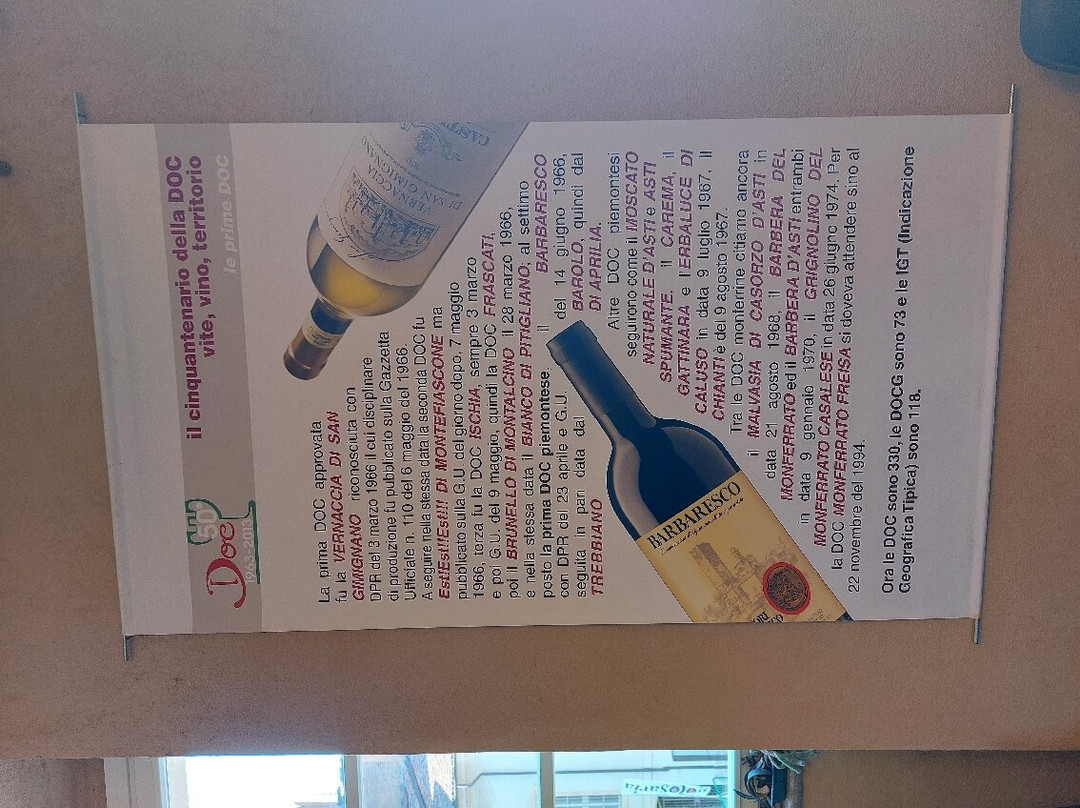 il cinquantenario della DOC
vite, vino, territorio
le prime DOC
50
Doc
1963-2013
La prima DOC approvata
fu la VERNACCIA DI SAN
GIMIGNANO riconosciuta con
DPR del 3 marzo 1966 il cui disciplinare
di produzione fu pubblicato sulla Gazzetta
Ufficiale n. 110 del 6 maggio del 1966.
A seguire nella stessa data la seconda DOC fu
Est!Est!!Est!!! DI MONTEFIASCONE ma
pubblicato sulla G.U. del giorno dopo, 7 maggio
1966, terza fu la DOC ISCHIA, sempre 3 marzo
e poi G.U. del 9 maggio, quindi la DOC FRASCATI,
poi il BRUNELLO DI MONTALCINO il 28 marzo 1966,
e nella stessa data il BIANCO DI PITIGLIANO; al settimo
posto la prima DOC piemontese il BARBARESCO
con DPR del 23 aprile e G.U. del 14 giugno 1966,
seguita in pari data dal BAROLO, quindi dal
TREBBIANO DI APRILIA.
Altre DOC piemontesi
seguirono come il MOSCATO
NATURALE D'ASTI e ASTI
SPUMANTE, il CAREMA, il
GATTINARA e l'ERBALUCE DI
CALUSO in data 9 luglio 1967, il
CHIANTI è del 9 agosto 1967.
Tra le DOC monferrine citiamo ancora
il MALVASIA DI CASORZO D'ASTI in
data 21 agosto 1968, il BARBERA DEL
MONFERRATO ed il BARBERA D'ASTI entrambi
in data 9 gennaio 1970, il GRIGNOLINO DEL
MONFERRATO CASALESE in data 26 giugno 1974. Per
la DOC MONFERRATO FREISA si doveva attendere sino al
22 novembre del 1994.
Ora le DOC sono 330, le DOCG sono 73 e le IGT (Indicazione
Geografica Tipica) sono 118.
VERNACCIA
DI SAN GIMIGNANO
BARBARESCO